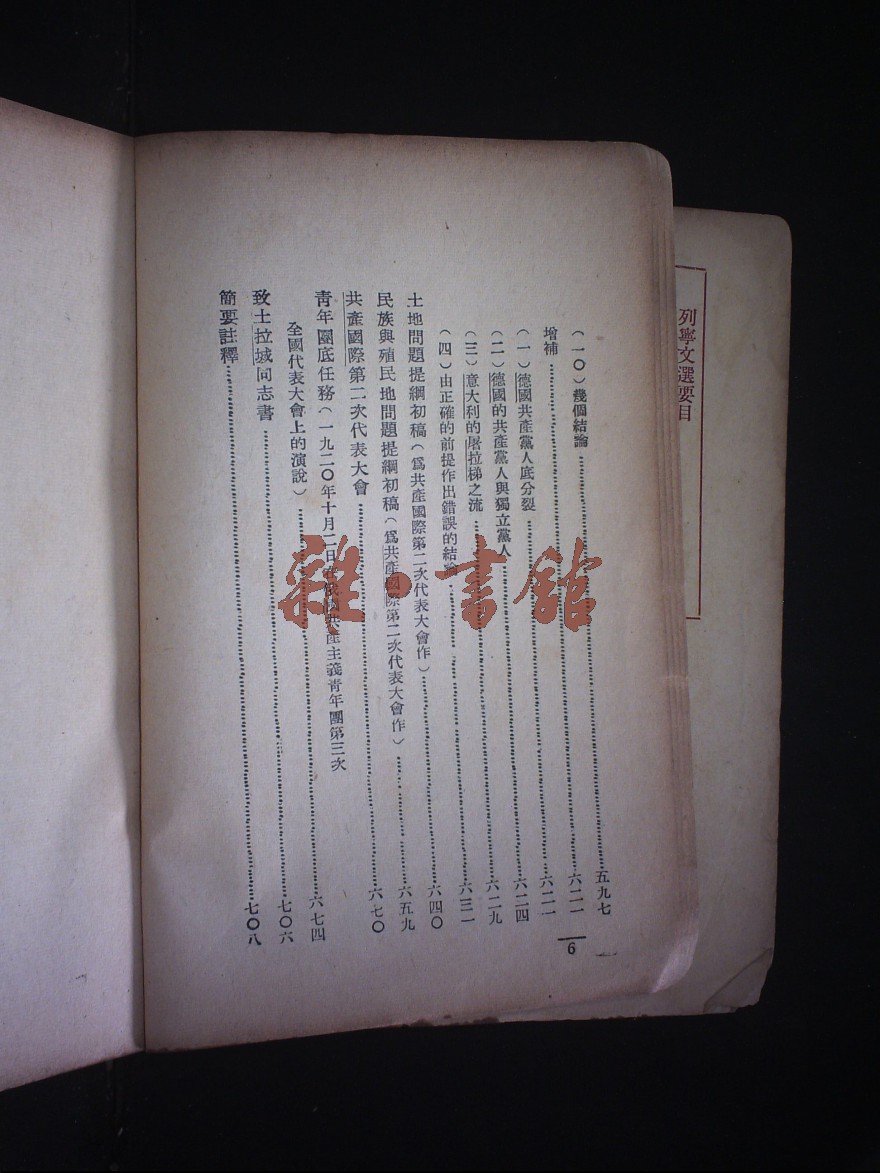 列寧文選要目
（一〇）幾個結論……五九七
增補……六二一
（一）德國共產黨人底分裂……六二一
（二）德國的共產黨人與獨立黨人……六二四
（三）意大利的屠拉梯之流……六二九
（四）由正確的前提作出錯誤的結論……六三一
土地問題提綱初稿（爲共產國際第二次代表大會作）……六四〇
民族與殖民地問題提綱初稿（爲共產國際第二次代表大會作）……六五九
共產國際第二次代表大會……六七〇
靑年團底任務（一九二〇年十月二日在俄國共產主義靑年團第三次
全國代表大會上的演說）……六七四
致土拉城同志書……七〇六
簡要註釋……七〇八
6
雜·書館